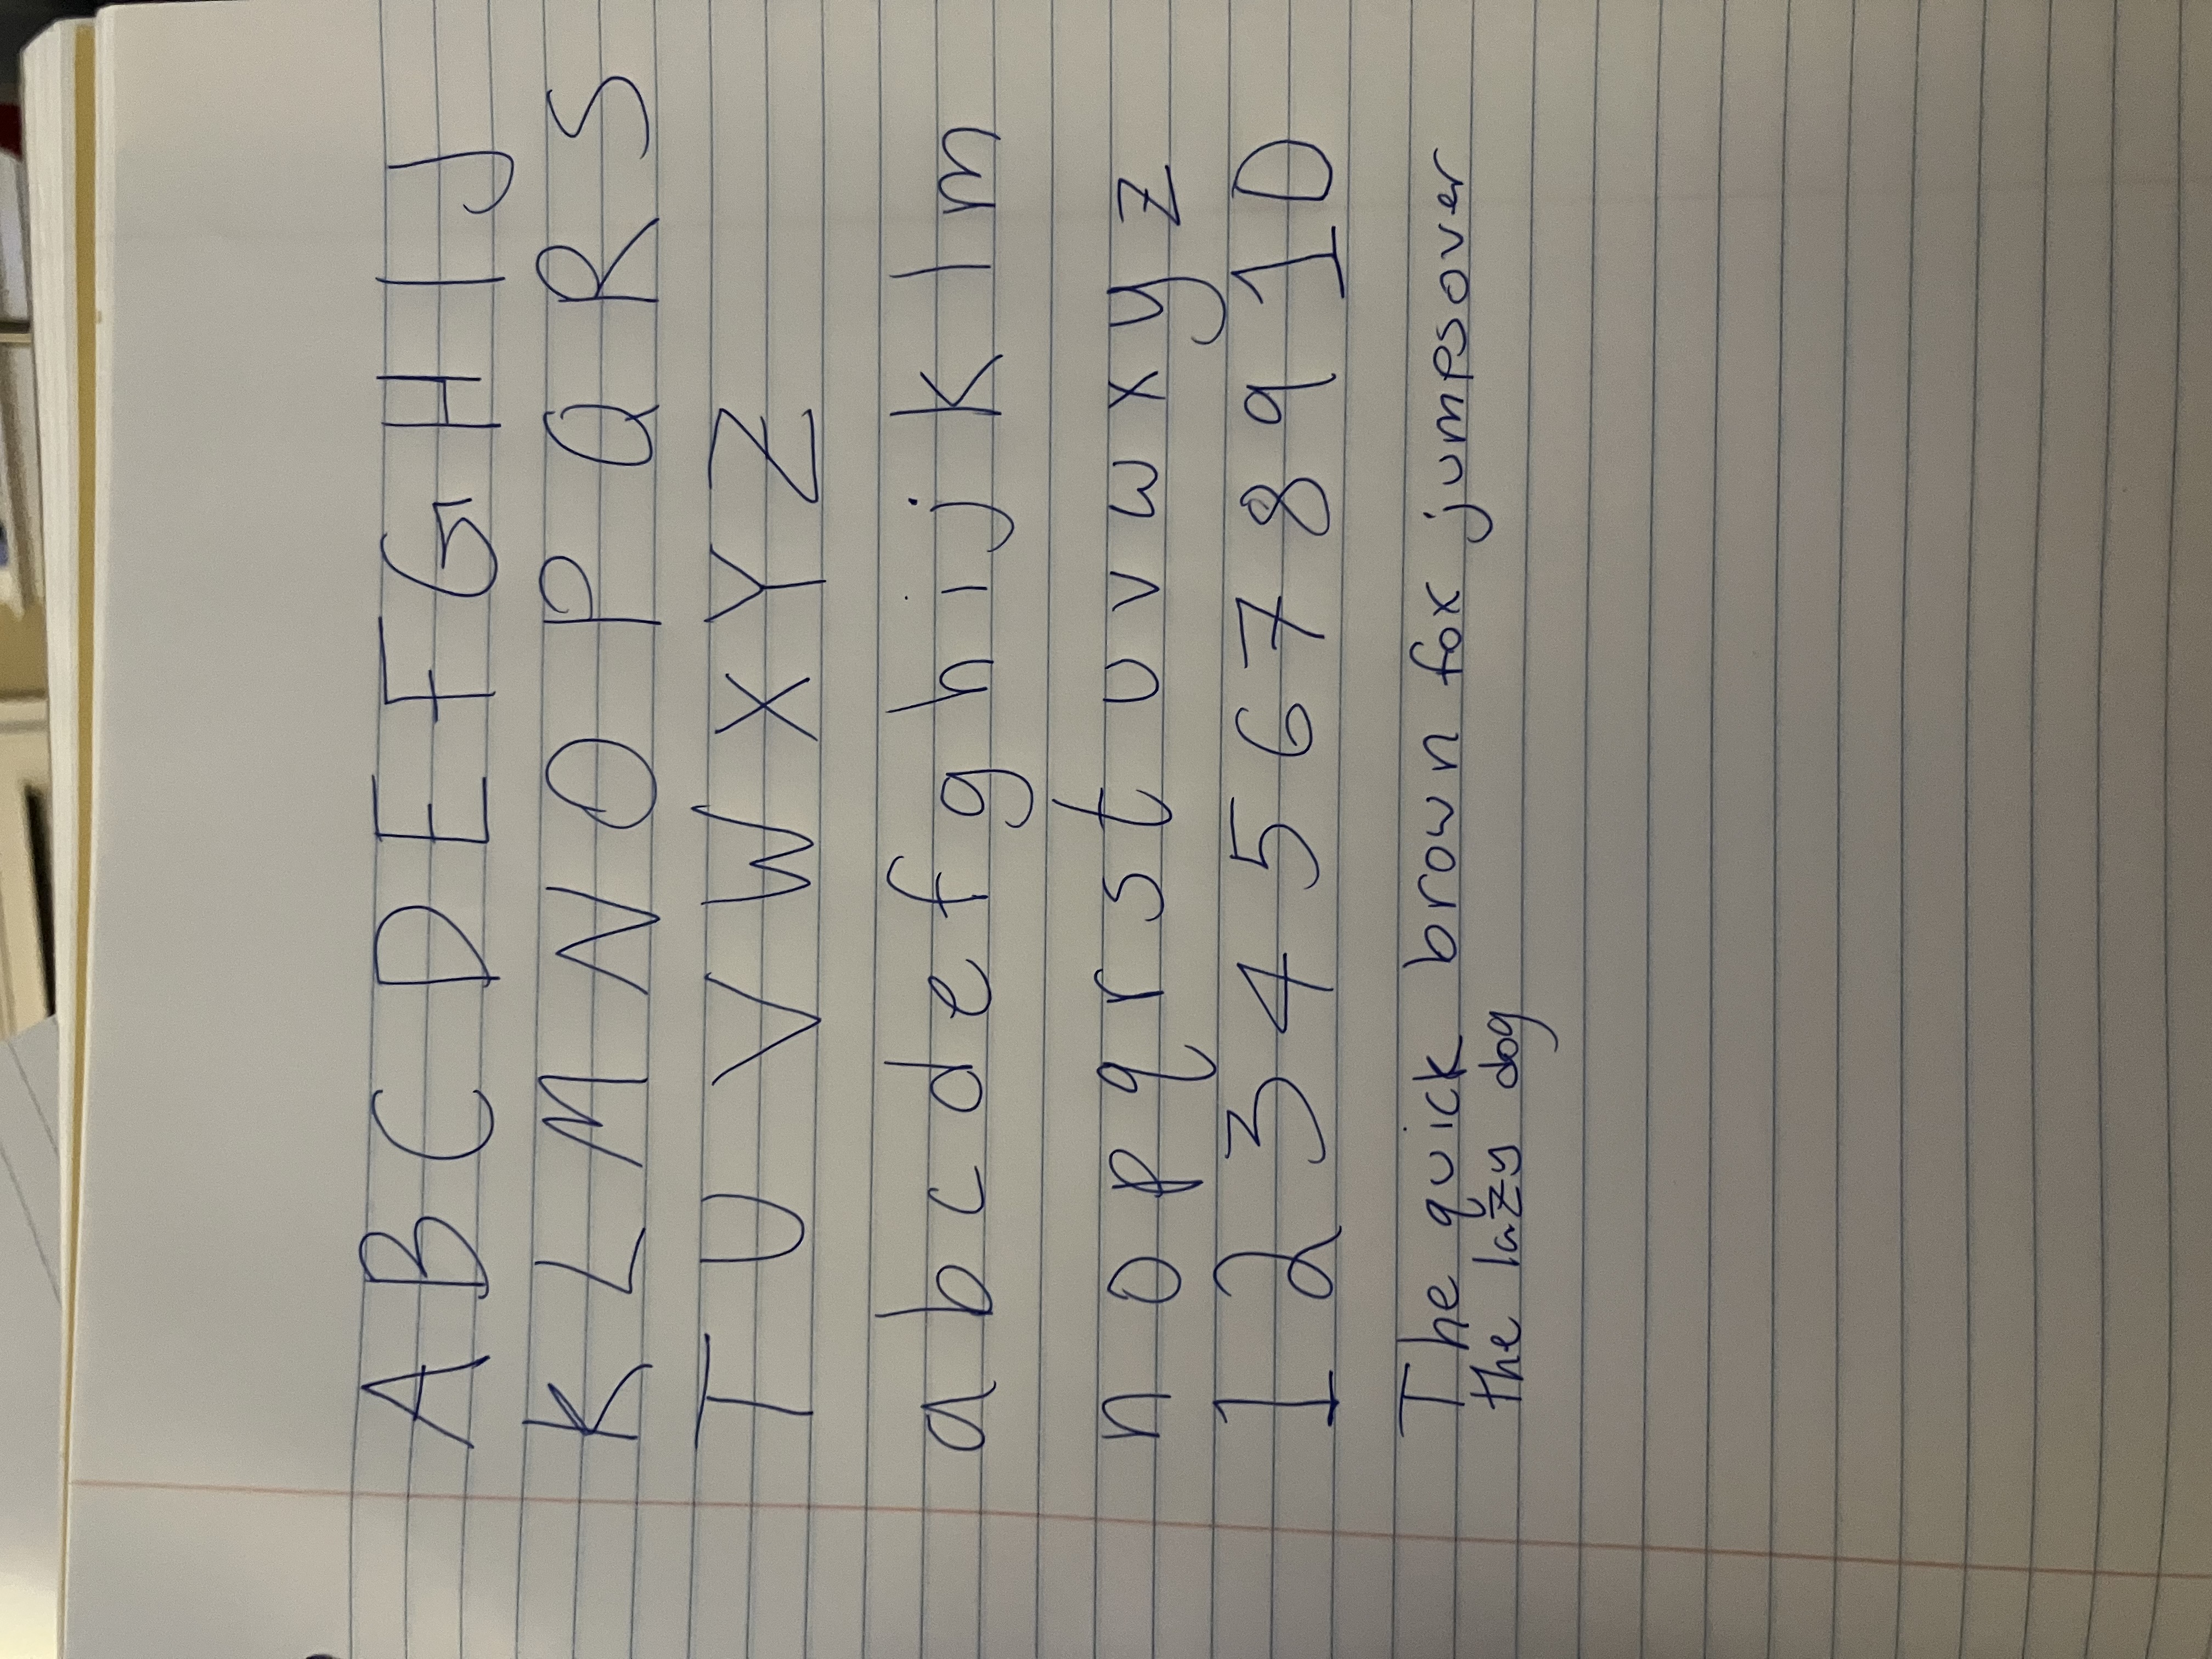 A B C D E F G H I J
K L M N O P Q R S
T U V W X Y Z
a b c d e f g h i j k l m
n o p q r s t u v w x y z
1 2 3 4 5 6 7 8 9 10
The quick brown fox jumps over
the lazy dog